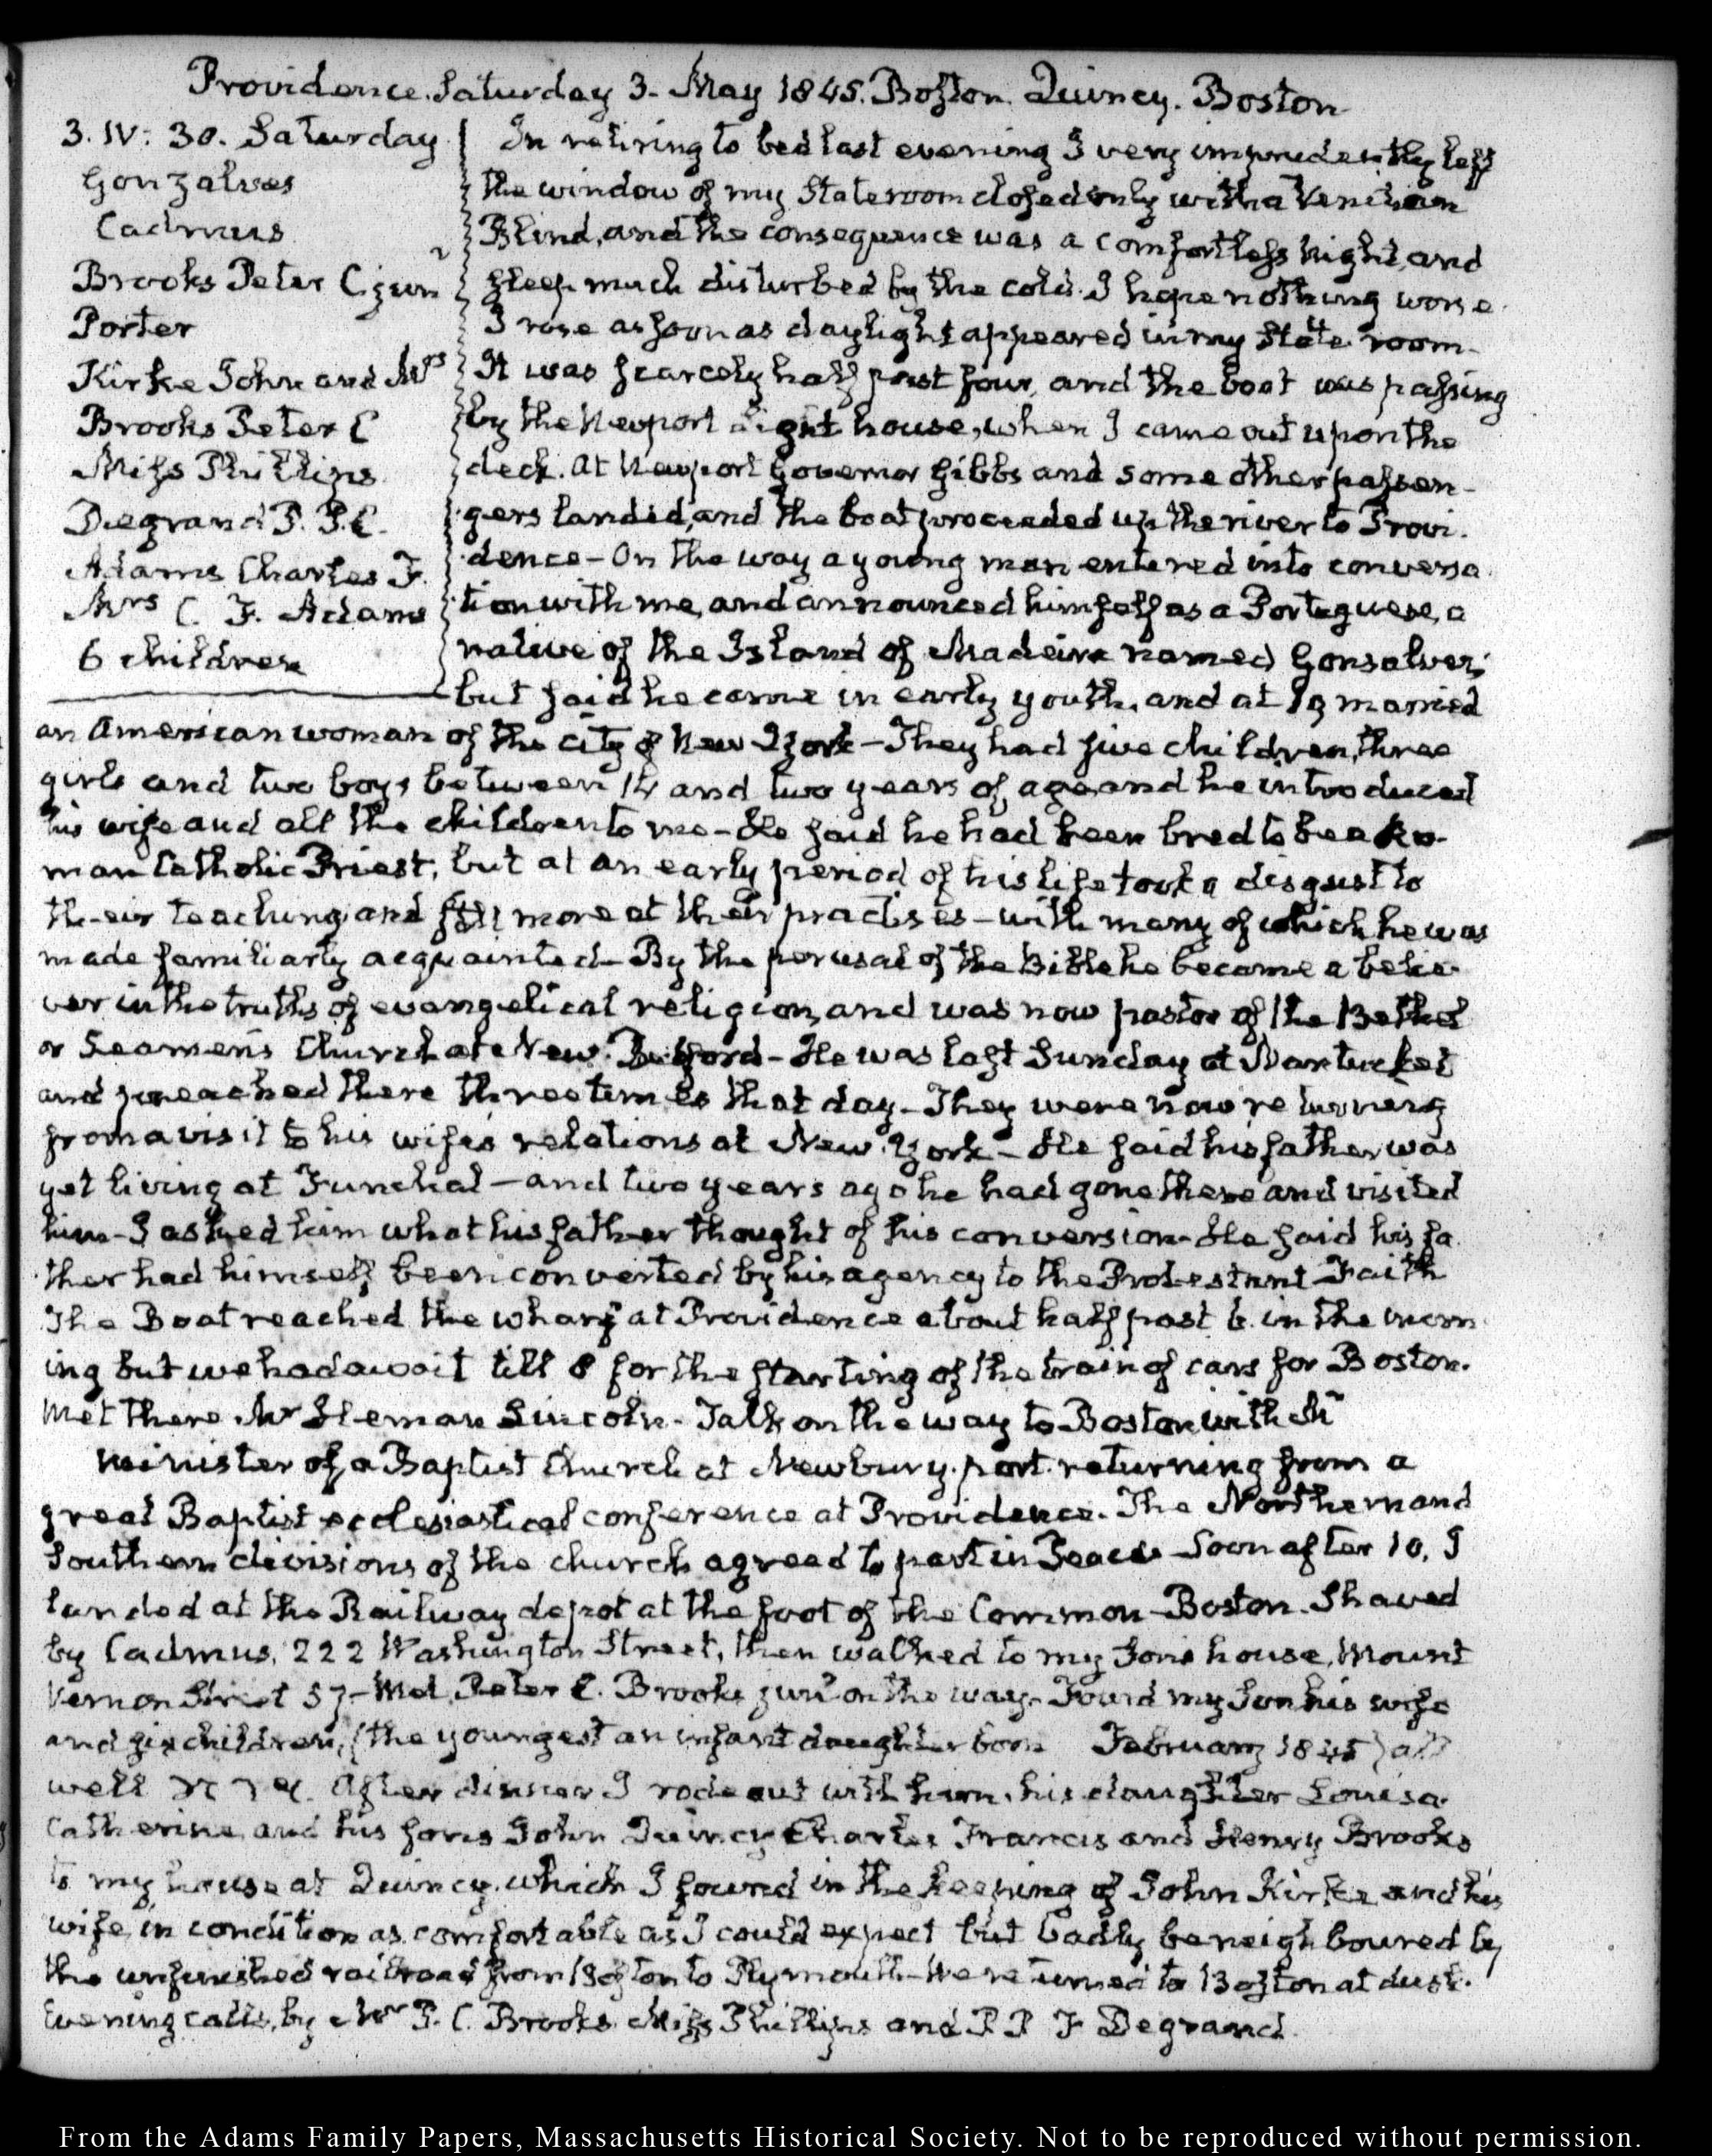 Providence. Saturday 3. May 1845. Boston. Quincy. Boston
3. IV: 30. Saturday
Gonzalves
Cadmus
Brooks Peter C jun
Porter
Kirke John and Mrs
Brooks Peter C
Miss Phillips
Degrand P. P.
Adams Charles F.
Mrs C. F. Adams
6 children
In retiring to bed last evening I very imprudently left
the window of my State room closed only with a Venitian
Blind, and the consequence was a comfortless night, and
sleep much disturbed by the cold. I hope nothing worse.
I rose as soon as daylight appeared in my State room-
It was scarcely half past four, and the boat was passing
by the Newport Light house, when I came out upon the
deck. At Newport Governor Gibbs and some other passen-
gers landed, and the boat proceeded up the river to Provi-
dence - On the way a young man entered into conversa
tion with me, and announced himself as a Portuguese, a
native of the Island of Madeira named Gonsalves;
but said he came in early youth, and at 19 married
an American woman of the city of New York - They had five children, three
girls and two boys between 14 and two years of age, and he introduced
his wife and all the children to me - He said he had been bred to be a Ro-
man Catholic Priest, but at an early period of his life took a disgust to
their teaching and still more at their practises - with many of which he was
made familiarly acquainted - By the perusal of the Bible he became a belie-
ver in the truths of evangelical religion, and was now pastor of the Bethel
or Seamen's Church at New Bedford - He was last Sunday at Nantucket
and preached there three times that day - They were now returning
from a visit to his wife's relations at New York - He said his father was
yet living at Funchal - and two years ago he had gone there and visited
him - I asked him what his father thought of his conversion - He said his fa
ther had himself been converted by his agency to the Protestant Faith
The Boat reached the wharf at Providence about half past 6 in the morn
ing but we had a wait till 8 for the starting of the train of cars for Boston.
Met there Mr Heman Lincoln - Talk on the way to Boston with Mr
minister of a Baptist Church at Newbury-port returning from a
great Baptist ecclesiastical conference at Providence. The Northern and
Southern divisions of the church agreed to part in Peace - Soon after 10, I
landed at the Railway depot at the foot of the Common - Boston. Shaved
by Cadmus, 222 Washington Street, then walked to my Sons house, Mount
Vernon Street 57 - Met Peter C. Brooks junr on the way. Found my Son his wife
and six children, (the youngest an infant daughter born February 1845) all
well After dinner I rode out with him, his daughter Louisa
Catherine, and his sons John Quincy, Charles Francis and Henry Brooks
to my house at Quincy, which I found in the keeping of John Kirke and his
wife, in condition as comfortable as I could expect but badly beneighboured by
the unfinished railroad from Boston to Plymouth - We returned to Boston at dusk.
Evening calls, by Mr P. C. Brooks Miss Phillips and P P F Degrand.
From the Adams Family Papers, Massachusetts Historical Society. Not to be reproduced without permission.